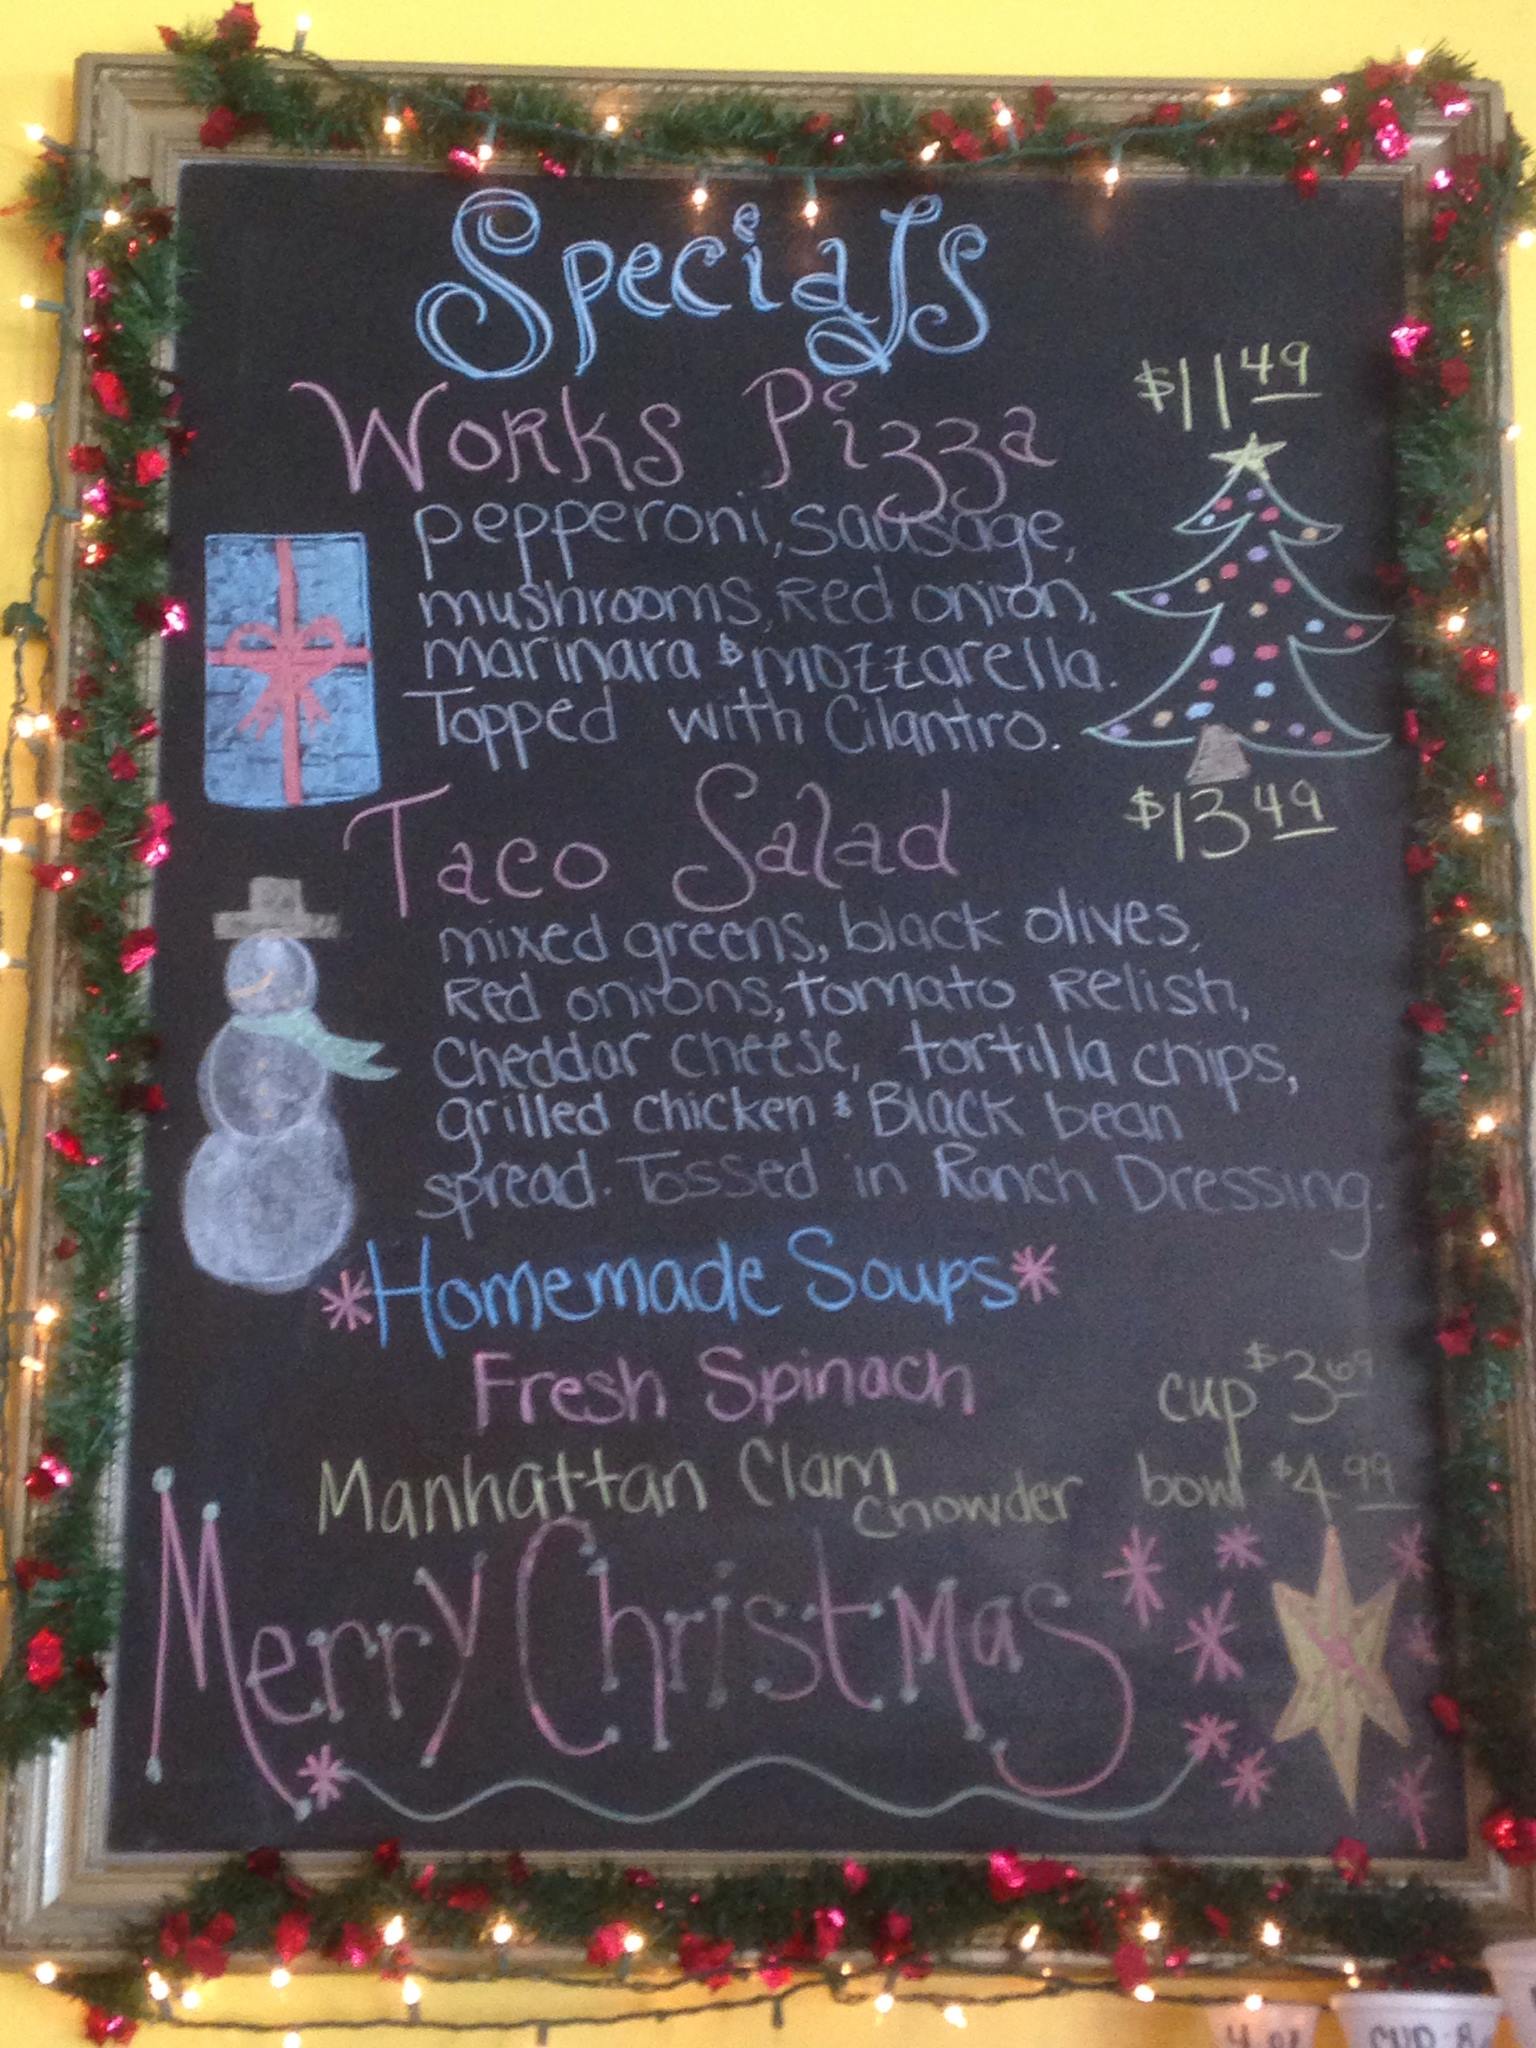 Specials
Works Pizza $11.49
pepperoni, sausage,
mushrooms, Red onion,
marinara & mozzarella.
Topped with Cilantro.
Taco Salad $13.49
mixed greens, black olives,
Red onions, tomato Relish,
Cheddar cheese, tortilla chips,
grilled chicken & Black bean
spread. Tossed in Ranch Dressing.
*Homemade Soups*
Fresh Spinach cup $3.69
Manhattan Clam Chowder bowl $4.99
Merry Christmas
4 oz CUP 8